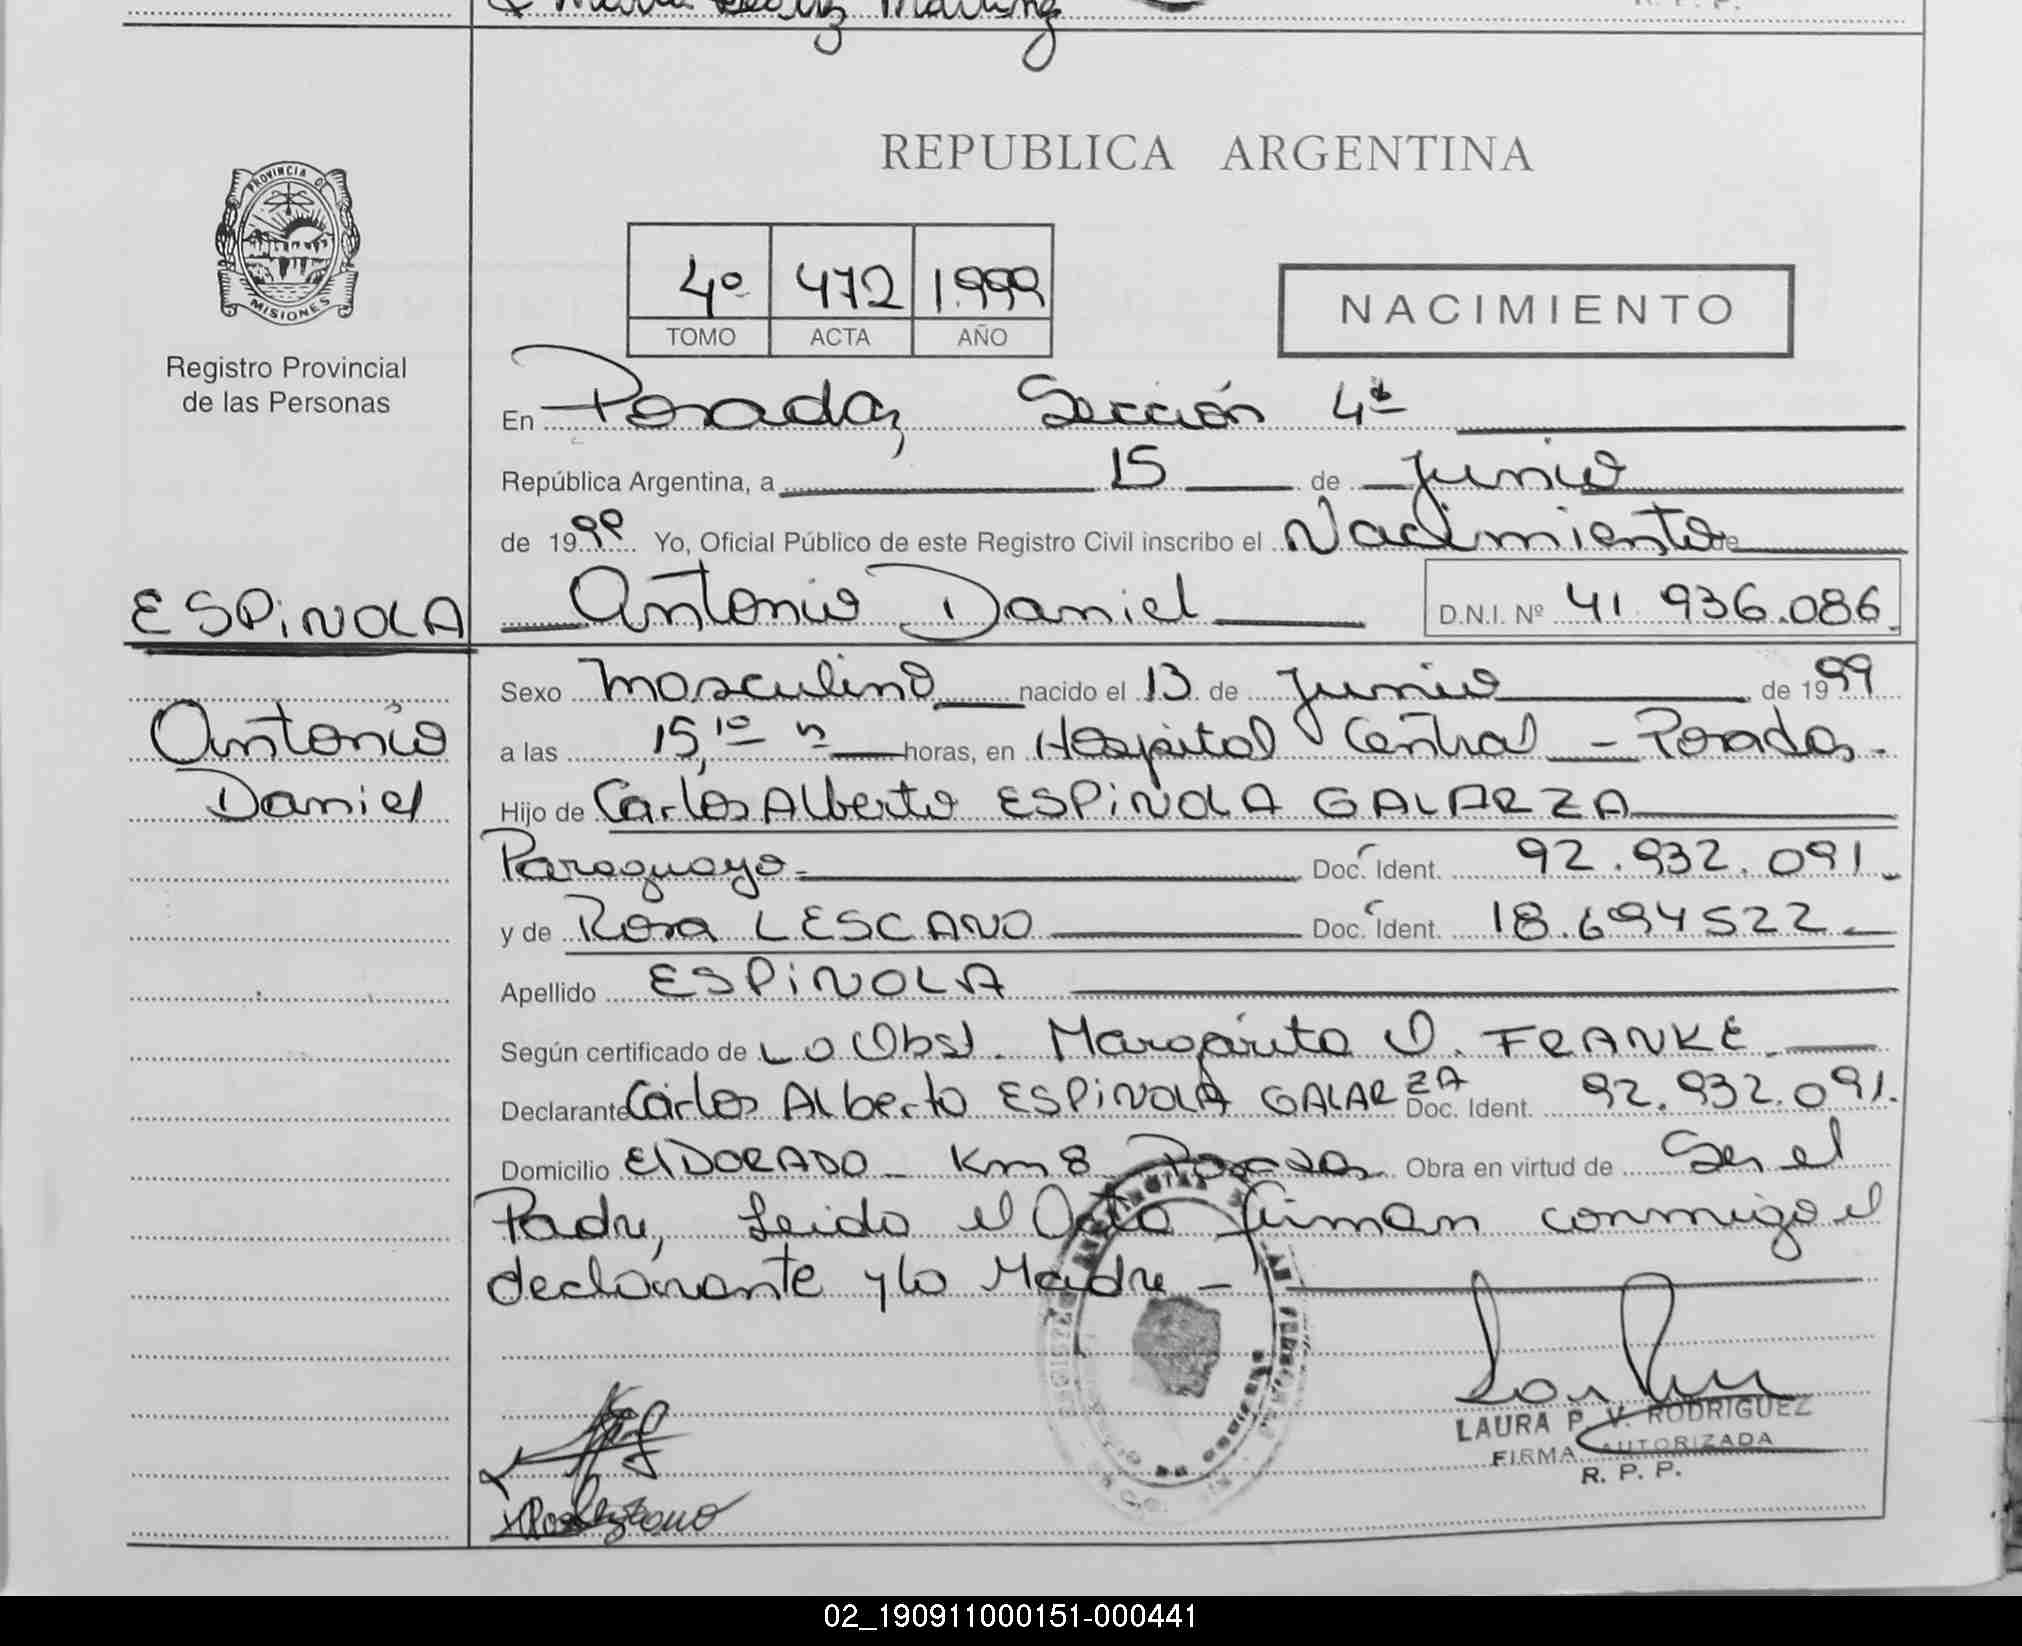 REPUBLICA ARGENTINA
PROVINCIA DE
MISIONES
Registro Provincial
de las Personas
4º 472 1.999
TOMO ACTA AÑO
NACIMIENTO
En Posadas, Sección 4ª
República Argentina, a 15 de Junio
de 1999 Yo, Oficial Público de este Registro Civil inscribo el Nacimiento de
ESPiNOLA Antonio Daniel D.N.I. Nº 41.936.086
Antonio
Daniel
Sexo Masculino nacido el 13 de Junio de 1999
a las 15,10 horas, en Hospital Central - Posadas.
Hijo de Carlos Alberto ESPiNOLA GALARZA
Paraguayo Doc. Ident. 92.932.091.
y de Rosa LESCANO Doc. Ident. 18.694522
Apellido ESPiNOLA
Según certificado de La Obst. Margarita O. FRANKE
Declarante Carlos Alberto ESPiNOLA GALARZA Doc. Ident. 92.932.091.
Domicilio ElDORADO Km 8 Posadas Obra en virtud de Ser el
Padre, Leido el Acta firman conmigo el
declarante y la Madre -
LAURA P. V. RODRIGUEZ
FIRMA AUTORIZADA
R. P. P.
02_190911000151-000441